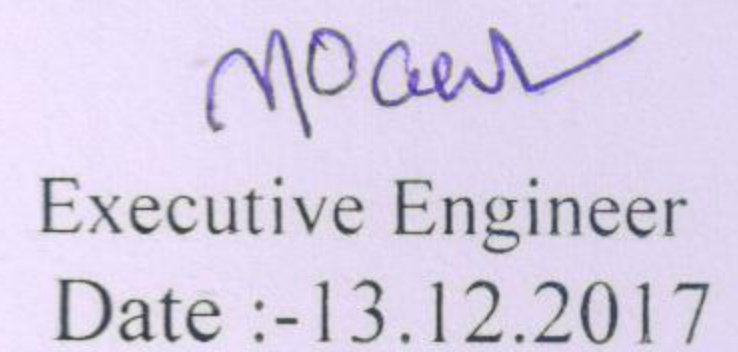 Executive Engineer
Date :-13.12.2017